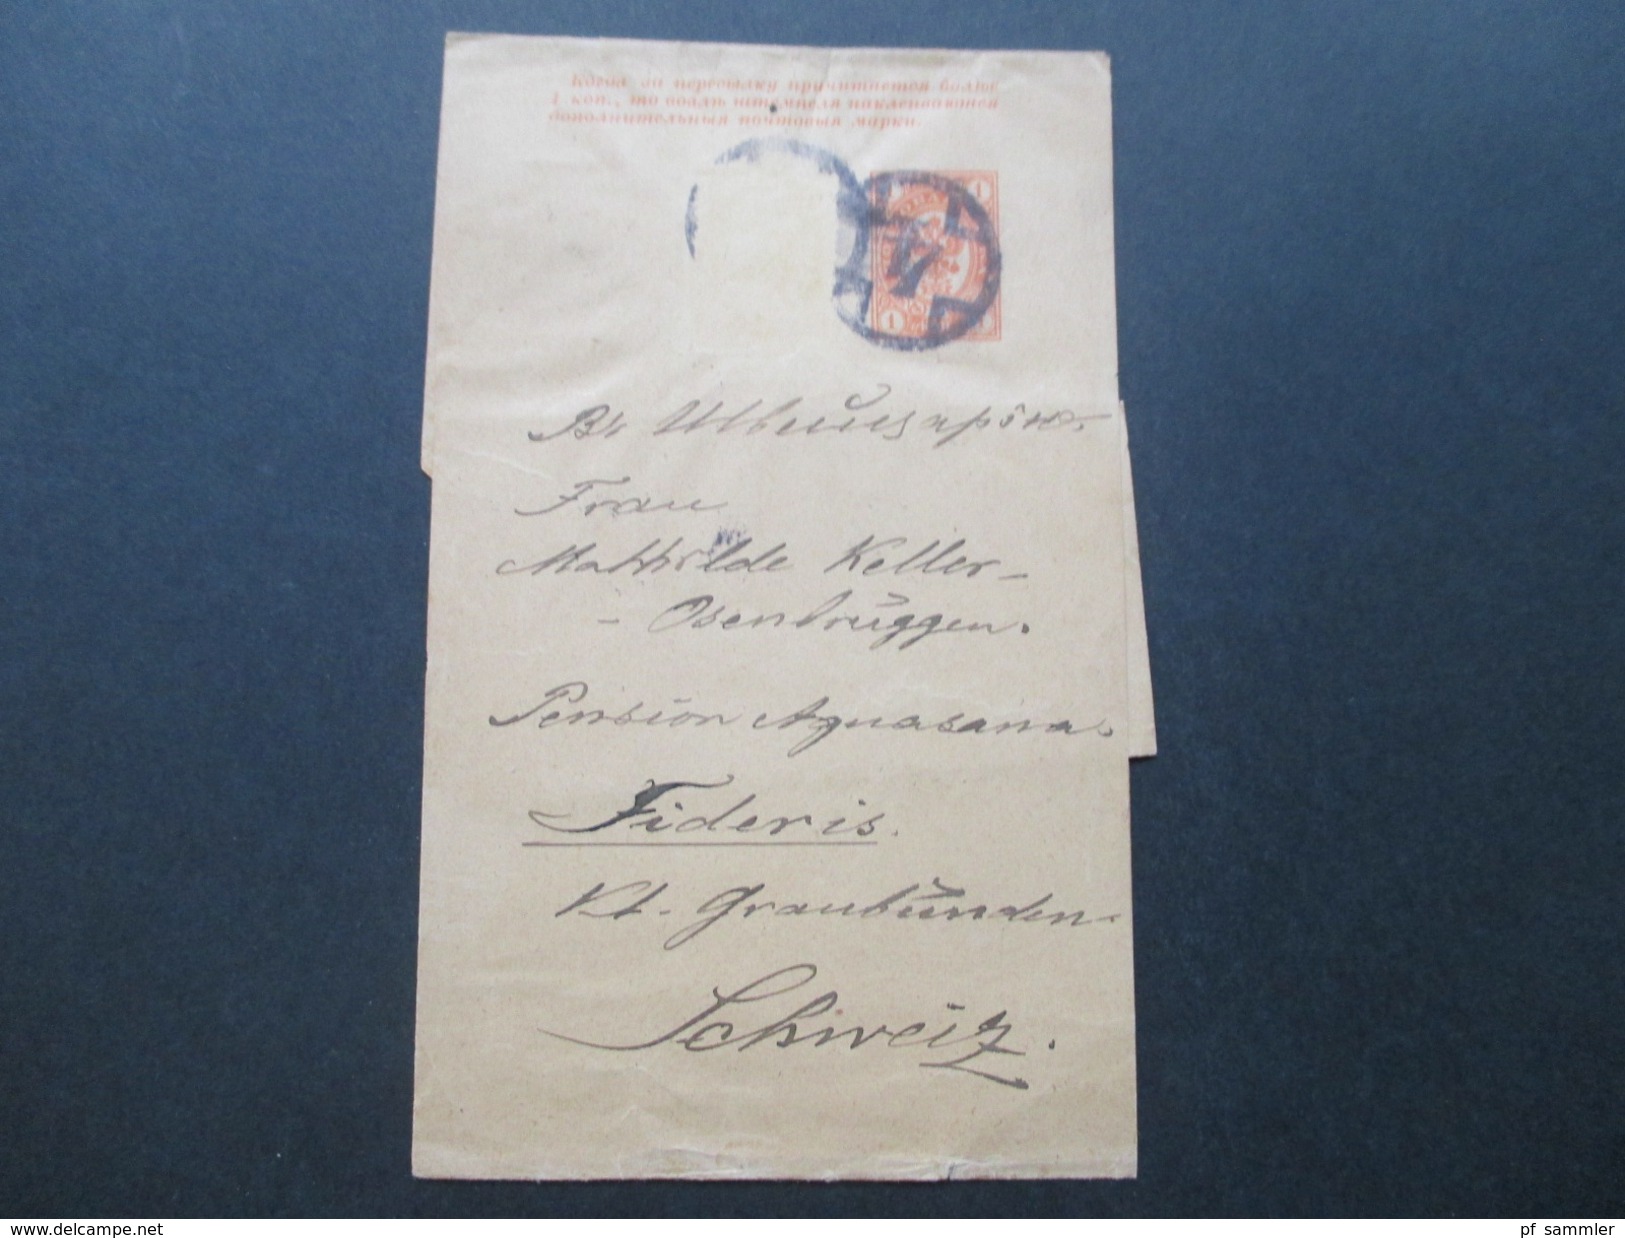 Когда за пересылку причитается болѣе
1 коп., то возлѣ штемпеля наклеиваются
дополнительныя почтовыя марки.
1
1
Въ Швейцарію
Frau
Mathilde Keller-
- Osenbrüggen.
Pension Aquasana.
Fideris.
Kt. Graubünden.
Schweiz.
www.delcampe.net
pf_sammler